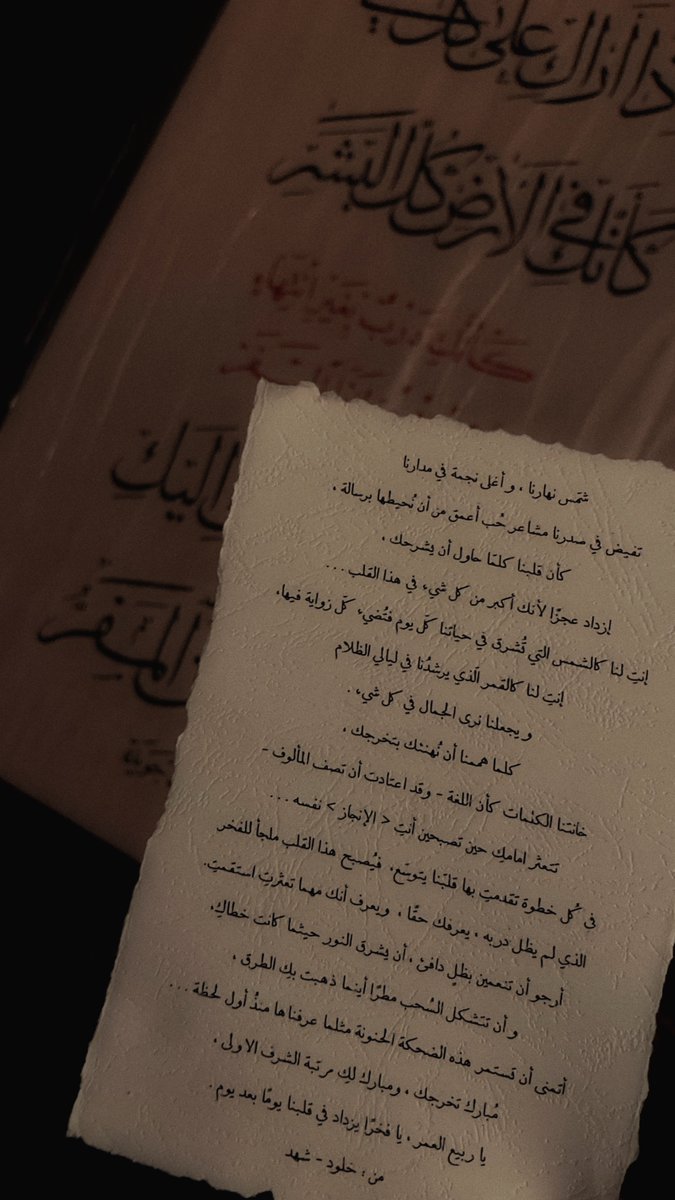 أراك على
كأنك في الأرض كل البشر
كأنك درب بغير انتهاء
إليك
المفر
شمَس نهارنا ، و أغلى نجمة في مدارنا
تفيض في صدرنا مشاعر حُب أعمق من أن نُحيطها برسالة ،
كأن قلبنا كلمّا حاول أن يشرحك ،
إزداد عجزًا لأنك أكبر من كل شيء في هذا القلب...
إنتِ لنا كالشمس التي تُشرق في حياتنا كلّ يوم فتُضيء كلّ زواية فيها.
إنتِ لنا كالقمر الّذي يرشدُنا في ليالي الظلام
و يجعلنا نرى الجمال في كل شيء .
كلما هممنا أن نُهنئك بتخرجك ،
خانتنا الكلمات كأن اللغة - وقد اعتادت أن تصف المألوف -
تتعثر امامكِ حين تصبحين أنتِ < الإنجاز > نفسه ...
في كُل خطوة تقدمتِ بها قلبنا يتوسّع، فيُصبح هذا القلب ملجأ للفخر
الذي لم يظل دربه ، يعرفك حقًا ، ويعرف أنك مهما تعثّرتِ استقمتِ.
أرجو أن تنعمين بظلٍ دافئ ، أن يشرق النور حيثما كانت خطاكِ،
و أن تتشكل السُحب مطرًا أينما ذهبت بكِ الطرق ،
أتمنى أن تستمر هذه الضحكة الحنونة مثلما عرفناها منذُ أول لحظة ...
مُبارك تخرجك ، ومبارك لكِ مرتبة الشرف الاولى ،
يا ربيع العمر ، يا فخرًا يزداد في قلبنا يومًا بعد يوم .
من : خلود - شهد